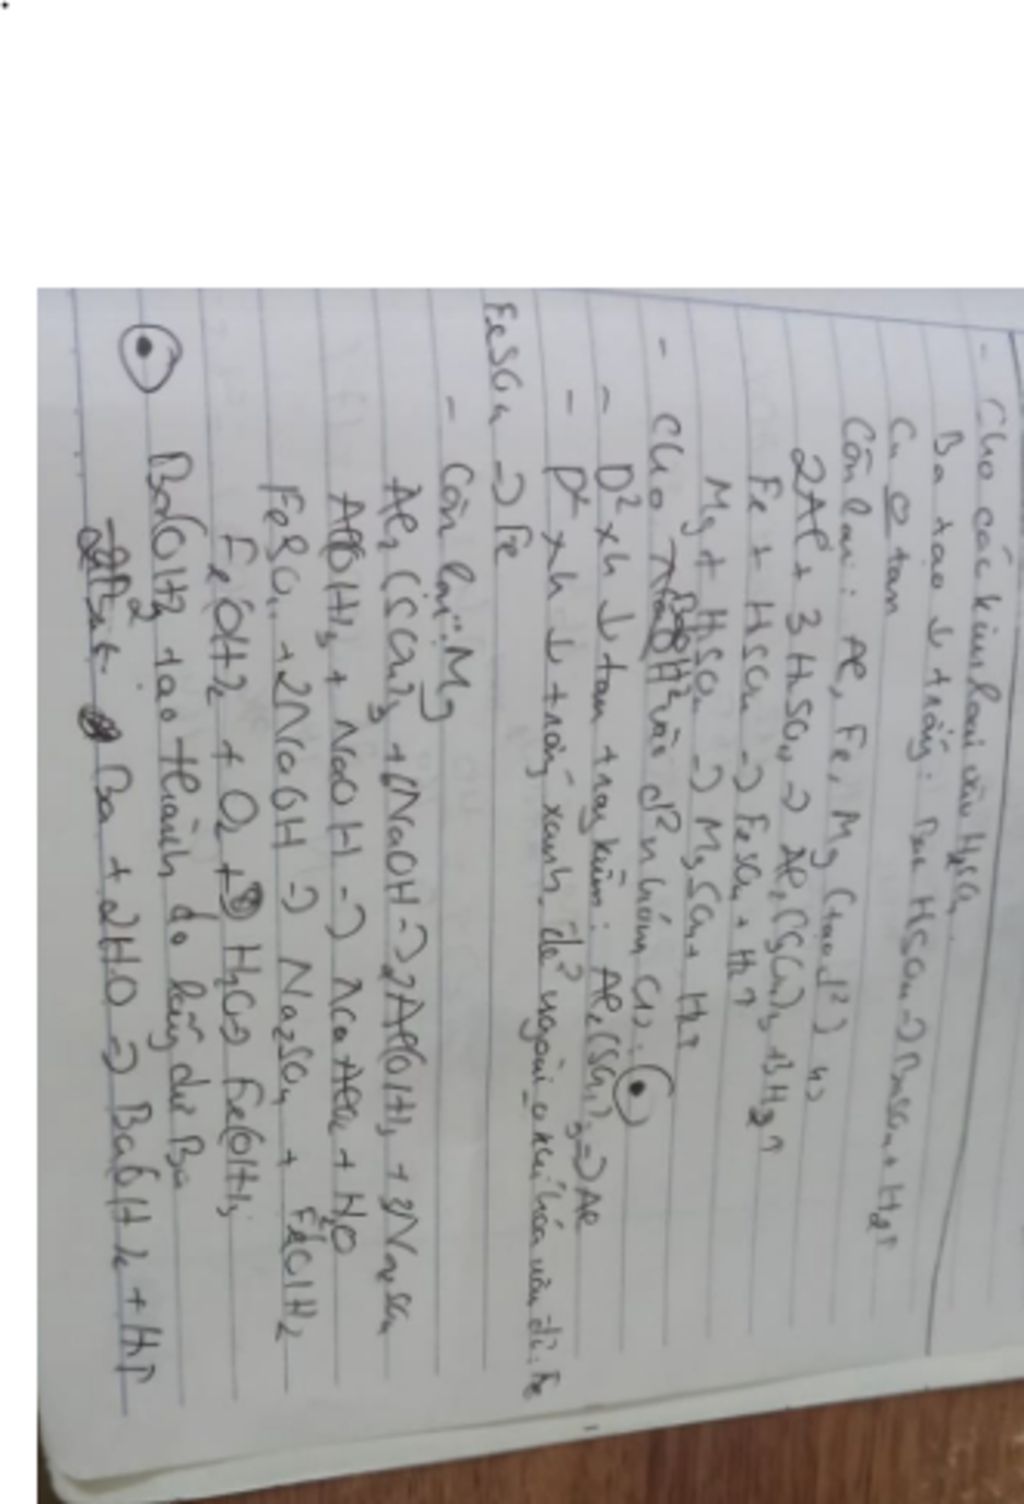 - Cho các kim loại vào H2SO4
Ba tạo ↓ trắng: Ba + H2SO4 → BaSO4 + H2↑
Cu o tan
Còn lại: Al, Fe, Mg (tạo d²)
2Al + 3H2SO4 → Al2(SO4)3 + 3H2↑
Fe + H2SO4 → FeSO4 + H2↑
Mg + H2SO4 → MgSO4 + H2↑
- Cho vào d² nhóm (1).
- D² xh ↓ tan trong kiềm: Al2(SO4)3 => Al
- D² xh ↓ trắng xanh, để ngoài o khí hóa nâu đỏ: Fe
FeSO4 => Fe
- Còn lại: Mg
Al2(SO4)3 + 6NaOH → 2Al(OH)3 + 3Na2SO4
Al(OH)3 + NaOH → NaAlO2 + H2O
FeSO4 + 2NaOH → Na2SO4 + Fe(OH)2
Fe(OH)2 + O2 + H2O → Fe(OH)3
Ba(OH)2 tạo thành do lấy dư Ba
Ba + 2H2O → Ba(OH)2 + H2↑